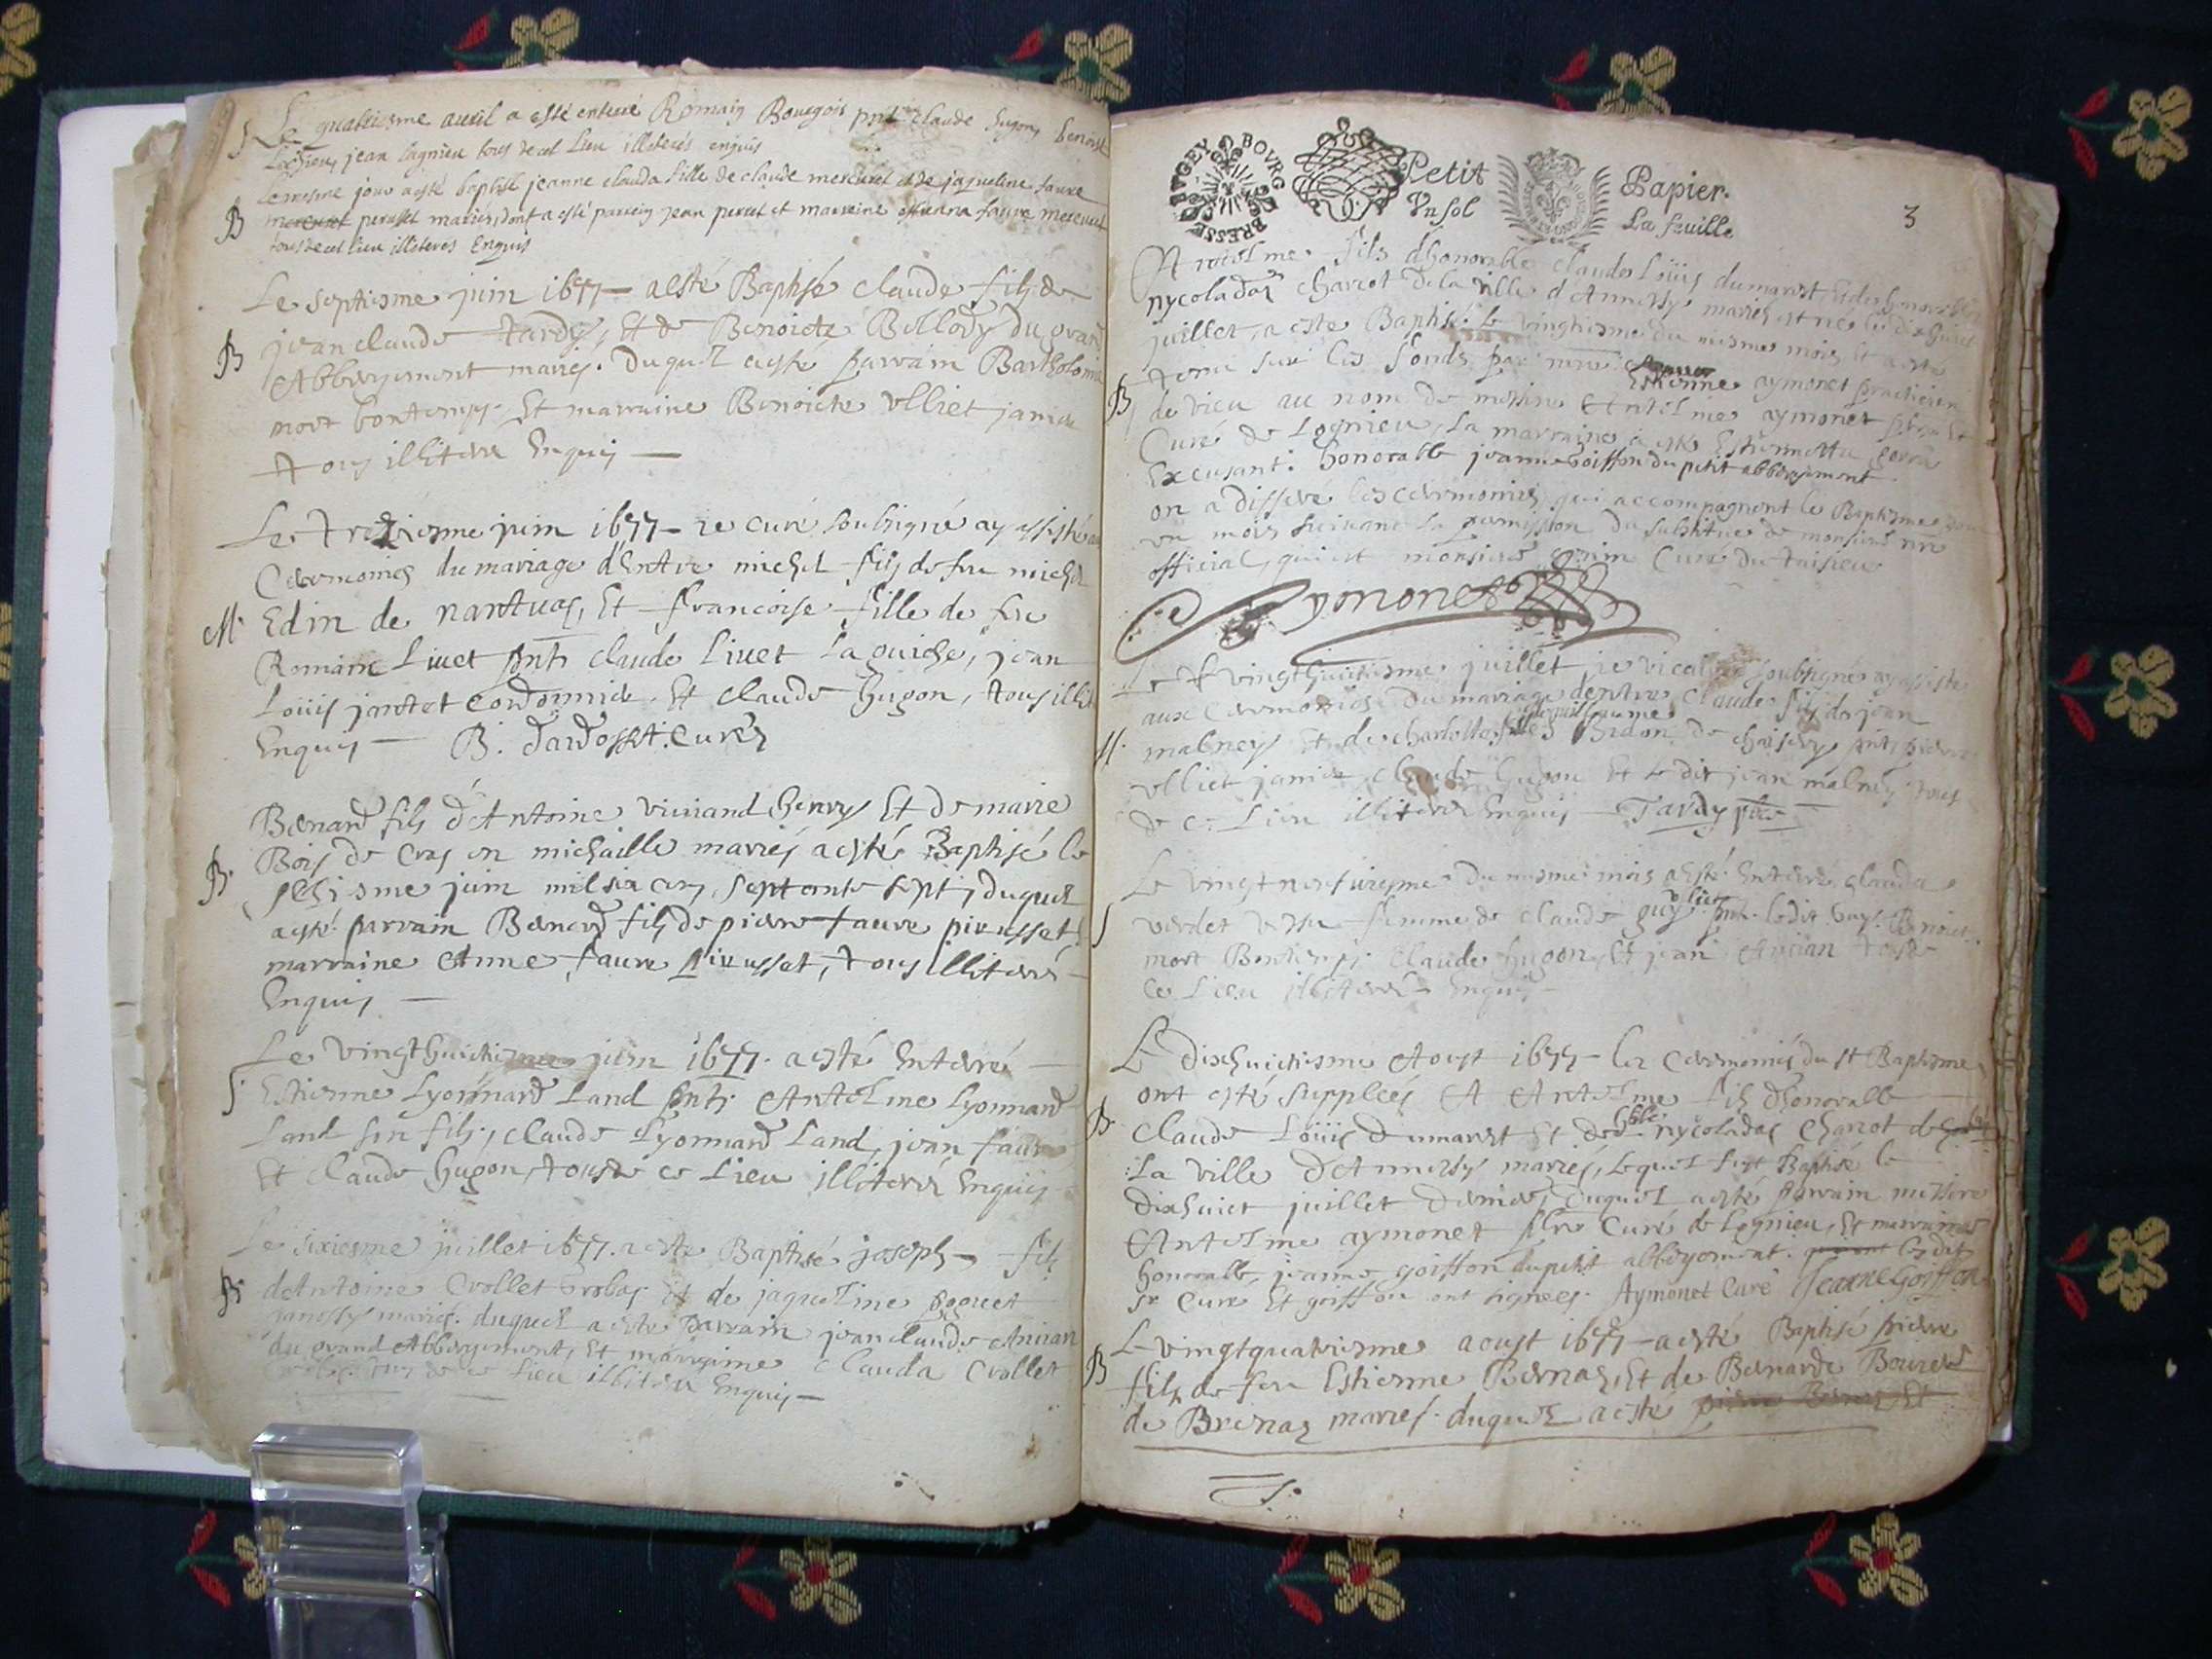 S Le quatriesme avril a esté enterré Romain Bourgois pnt claude hugon, benoist
jean lagnieu tous de cel lieu illiterés enquis
Le mesme jour a esté baptisé jeanne clauda fille de claude mercuret et de jaqueline favre
B perusset mariés, dont a esté parrein jean perret et marreine favre mercuret
tous de cel lieu illiterés Enquis
Le septiesme juin 1677 — a esté Baptisé claude filz de
jean claude tardy, Et de Benoicte Bellody du grand
B Abbergement mariés. duquel a esté parrain Bartholomie
mort bontemps. Et marraine Benoicte Ulliet janin
tous illiteres Enquis —
Le treziesme juin 1677 — ie curé soubsigné ay assisté au
Ceremonies du mariage d'Entre michel filz de feu michel
M. Edin de nantuas, Et francoise fille de feu
Romain Livet pnts claude Livet Laguiche, jean
Loüis jantet Cordonnier. Et claude hugon, tous illit
Enquis — B. dardosset. Curez
Benard filz d'Antoine viviand henry Et de marie
B. Bois de Cras en michaille mariés a esté Baptisé le
sesiesme juin mil six cens septante sept, duquel
a esté parrain Benard filz de pierre favre pirusset
marraine Anne favre pirusset, tous illiteré
Enquis —
Le vingthuictiesme juin 1677. a esté Enterré —
S. Estienne Lyonnard Land pnts. Antelme Lyonnard
Land son filz, claude Lyonnard Land, jean favre
Et claude hugon, tous de ce Lieu illiteres Enquis
Le sixiesme juillet 1677. a este Baptisé joseph — filz
B. d'Antoine Crollet Et de jaqueline
mariés. duquel a esté parrain jean claude Anivan
du grand Abbergement, Et marraine clauda Crollet
tous de ce Lieu illiteres Enquis —
BVGEY BOVRG BRESSE
Petit Papier.
Vn sol La feuille
3
Antelme filz d'honorable claude Loüis dumarest Et de honorable
nycoladaz charcot de la ville d'Annessy mariés est né le dixhuict
juillet, a este Baptisé le vingtiesme du mesme mois Et a este
tenu sur les fonds par Estienne aymonet practicien
B. de vieu au nom de messire Antelme aymonet pbre Et
Curé de Lognieu, La marraine a esté Estiennette
Excusant. honorable jeanne Goiffon du petit abbergement
on a differé les ceremonies qui accompagnent le Baptesme pour
un mois suivant La permission du substitue de monsieur nre
official, qui est monsieur Curé du
Aymonet
Le vingthuictiesme juillet je vicaire soubsigné ay assisté
aux Ceremonies du mariage d'entre Claude filz de jean
M. malney Et de charlotte fille de guillaume de pnts pierre
Ulliet janin, claude hugon Et le dit jean malney tous
de ce Lieu illiteres Enquis — Tardy pbre
Le vingtneufviesme du mesme mois a esté Enterré clauda
S verdet femme de claude guy pnt. ledit guy. Benoict
mort Bontemps. Claude hugon, Et jean Anivan tous de
ce Lieu illiteres Enquis —
Le dixhuictiesme Aoust 1677 — les Ceremonies du st Baptesme
ont esté supplées A Antelme filz d'honorable
B. Claude Loüis dumarest Et de hble nycoladas charcot de
La ville d'Annessy mariés, lequel fust Baptisé le
dixhuict juillet dernier, duquel a esté parrain messire
Antelme aymonet pbre Curé de Lognieu, Et marraine
honorable jeanne goiffon du petit abbergement. lesdits
sr Curé Et goiffon ont signes. Aymonet Curé Jeanne Goiffon
Le vingtquatriesme aoust 1677 — a esté Baptisé pierre
B filz de feu Estienne Bernaz, Et de Benarde
de Brenaz mariés. duquel a esté